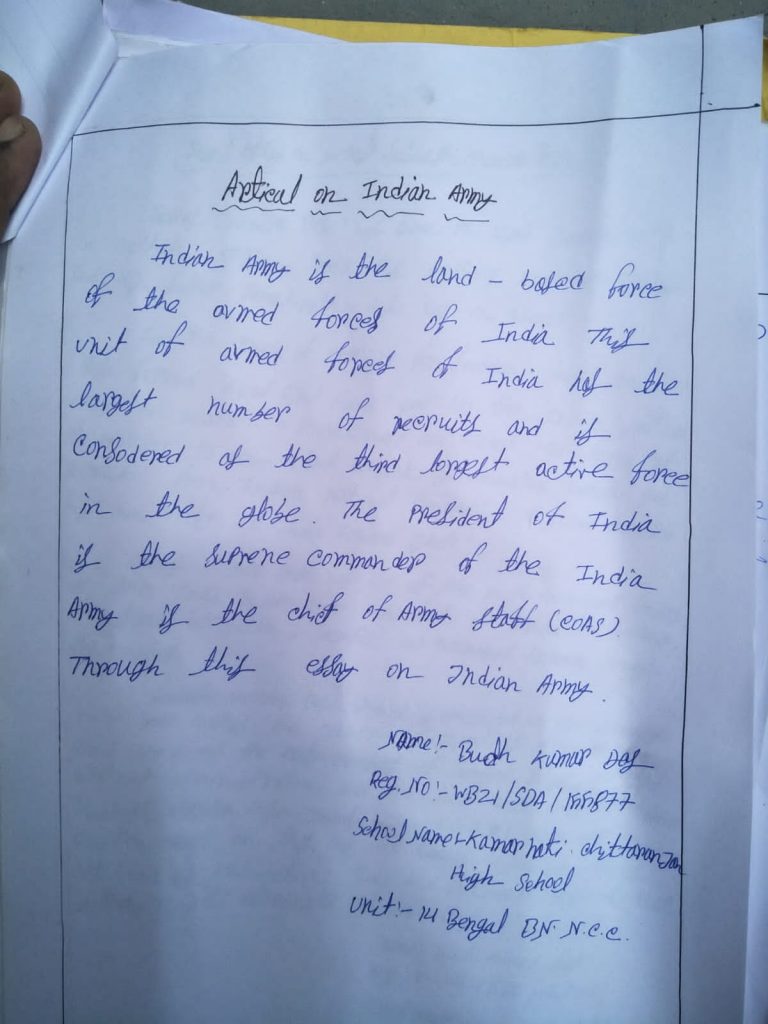 Artical on Indian Army
Indian Army is the land - based force
of the armed forces of India This
unit of armed forces of India has the
largest number of recruits and is
Consodered as the third longest active force
in the globe. The President of India
is the Supreme Commander of the India
Army is the chief of Army staff (COAS)
Through this essay on Indian Army.
Name:- Budh Kumar Das
Reg. No:- WB21/SDA/155877
School Name:- Kamarhati Chittaranjan
High School
Unit:- 14 Bengal BN. N.C.C.